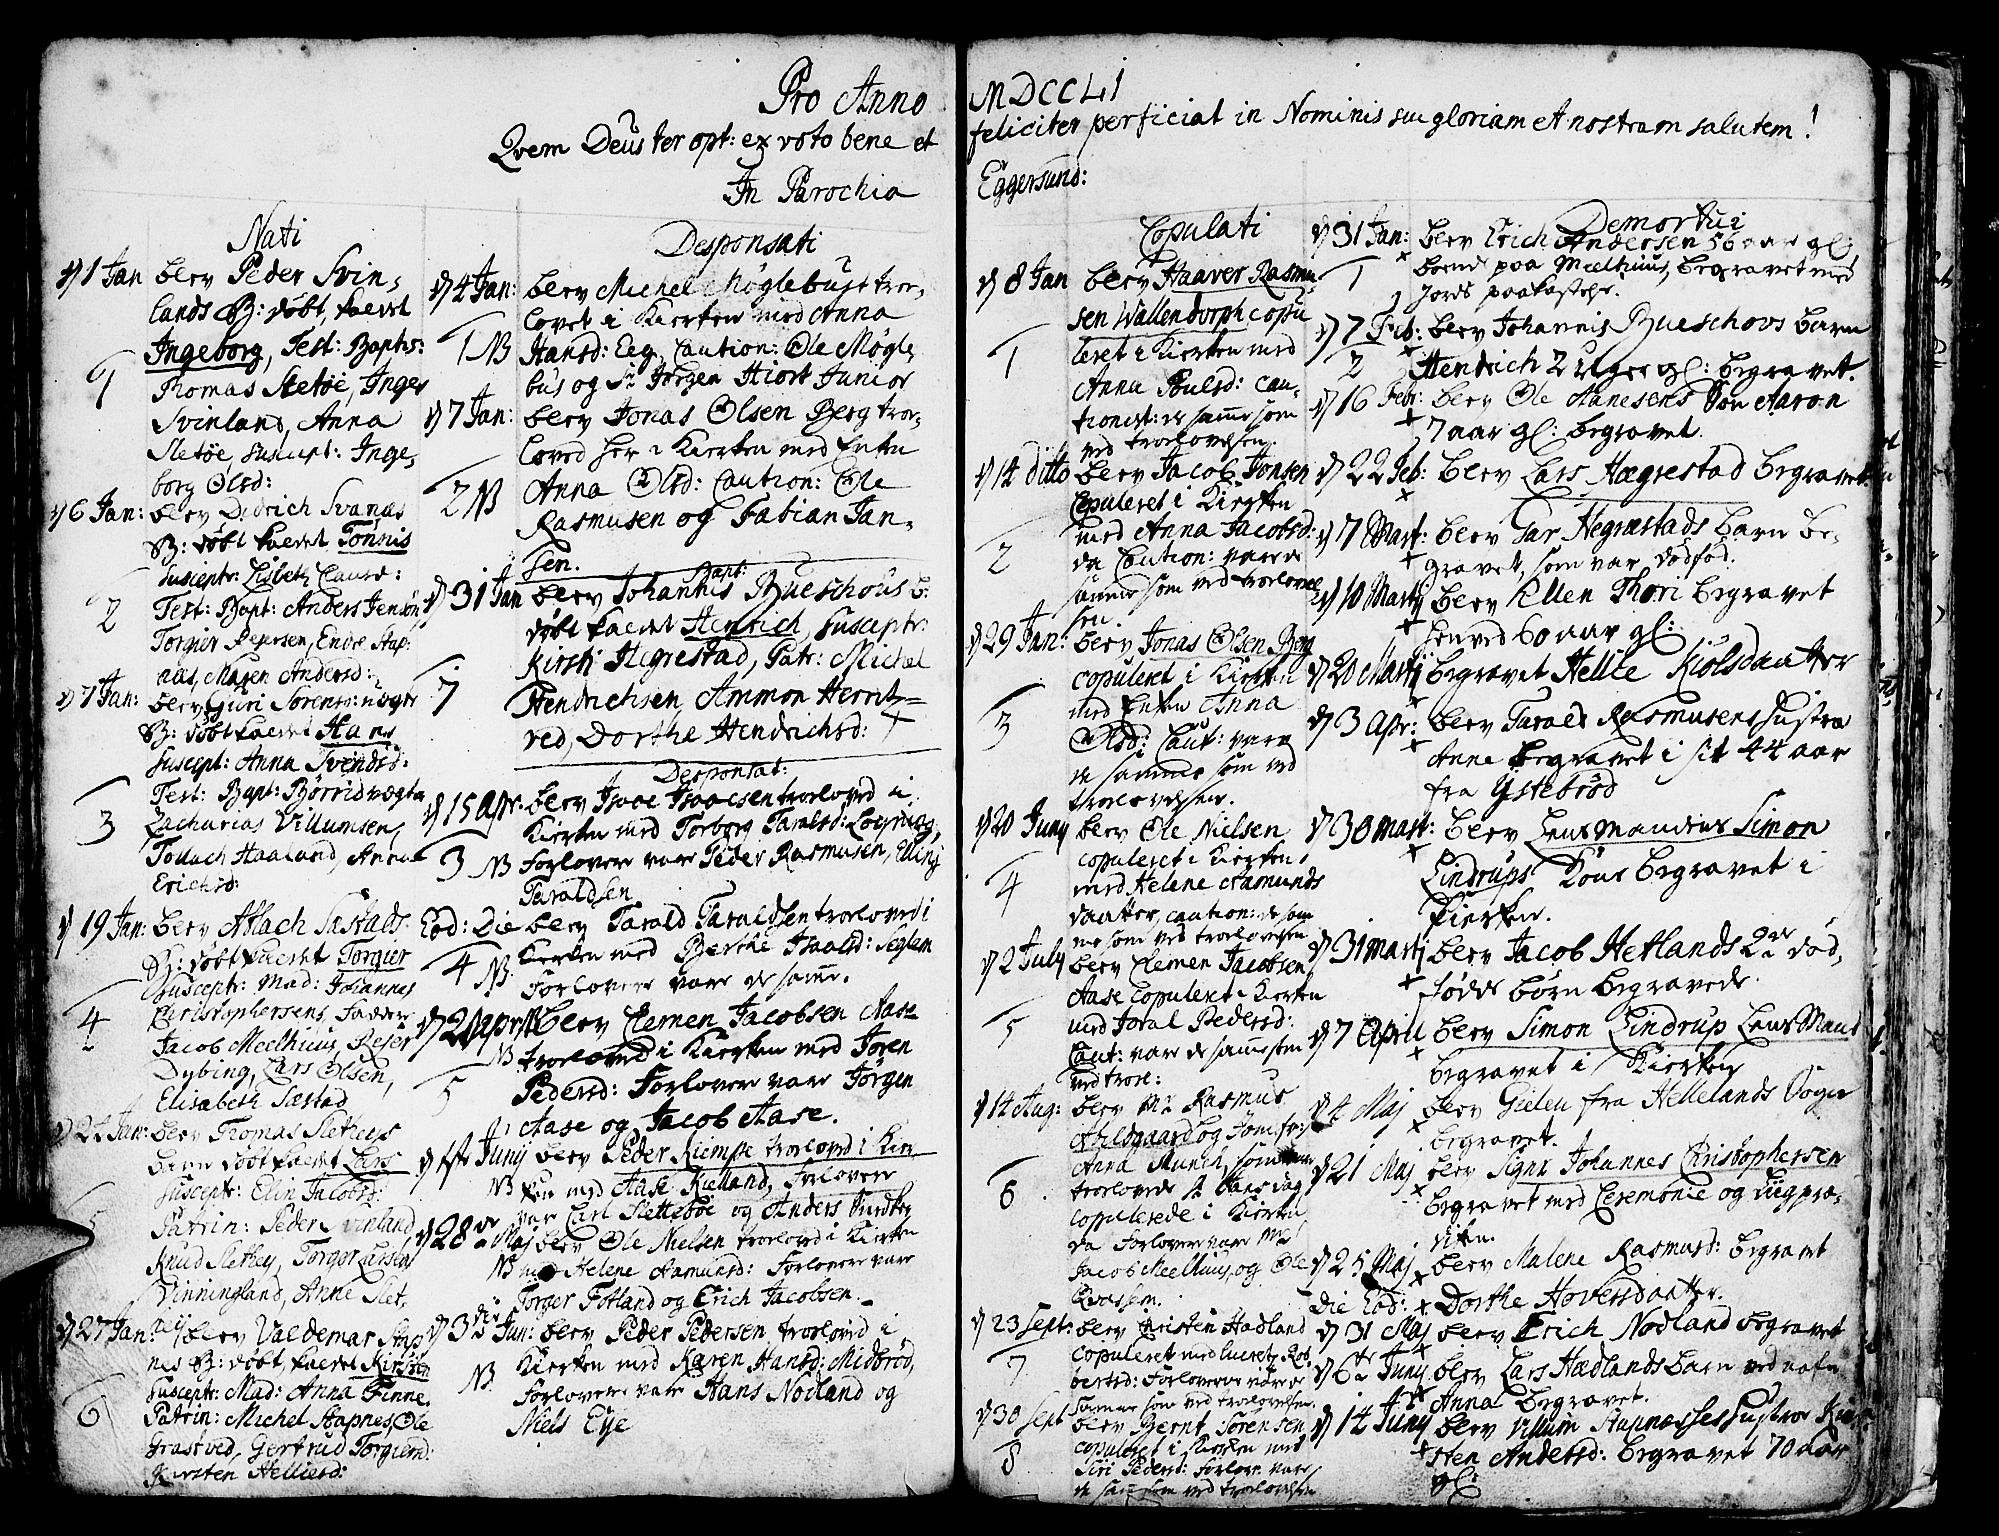 Pro Anno MDCCLI
Qvem Deus ter opt: ex voto bene et feliciter perficiat in Nominis sui gloriam et nostram salutem!
In Parochia Eggersund:
Nati
d 1 Jan blev Peder Svin,
lands B: døbt, kaldet
Ingeborg, Test: Baptis:
1
Thomas Sletøe, Inger
Svinland, Anna
Sletøe, suscept: Inge,
borg Olsd:
d 6 Jan: blev Didrich Svanæs
B: døbt kaldet Tønnis
Susceptr: Lisbeth Clausd:
2
Test: Bapt: Anders Jensøn
Torgier Pedersen, Endre Aap:
aas, Maren Andersd:
d 7 Jan: blev Guri Sørens:
B: døbt kaldet Hans
Suscept: Anna Svendsd:
Test: Bapt:
3
Zacharias Villumsen,
Tollach Haaland, Anna
Erichsd:
d 19 Jan: blev Asslach Sæstads
B: døbt kaldet Torgier
Susceptr: Mad: Johannes
Christophersens, Faddere
4
Jacob Meelhuus, Rejer
Dybing, Lars Olsen,
Elisabeth Sæstad
d 24 Jan: blev Thomas Sletheys
barn døbt kaldet Lars
Susceptr: Elin Jacobsd:
5
Patrin: Peder Svinland,
Knud Slethey, Torger Larsen
Vinningland, Anne Slet,
d 27 Jan: blev Valdemar Stap
nes B: døbt, kaldet Kirsten
Susceptr: Mad: Anna Finne.
6
Patrin: Michel Stapnes, Ole
Grastved, Gertrud Torgiersd:
Kirsten Helliesd:
Desponsati
d 4 Jan: blev Michel Møglebust tro,
lovet i Kierken med Anna
1 NB Hansd: Eeg, Caution: Ole Møgle
bus og Sr Jørgen Hiort Junior
d 7 Jan: blev Jonas Olsen Berg tro,
loved her i Kierken med Enken
2 NB Anna Olsd: Caution: Ole
Rasmusen og Fabian Jan,
sen.
Bapt:
d 31 Jan blev Johannis Bueschous b:
døbt kaldet Henrich, Susceptr:
Kirsti Hegrestad, Patr: Michel
7
Hendrichsen, Ammon Herrit,
red, Dorthe Hendrichsd:
Desponsat:
d 15 Apr. blev Isaac Isaacsen trolovd i
Kierken med Torborg Taralsd:
3 NB Forlovere vare Peder Rasmusen, Elling
Taraldsen
Eod: Die blev Tarald Taraldsen trolovd i
4 NB Kierken med Berthe Isaacsd: Seglem
Forlovere vare de samme.
April blev Clemen Jacobsen Aase
NB trolovd i Kierken med Joren
5
Pedersd: Forlovere vare Jørgen
Aase og Jacob Aase.
Junij blev Peder Kiempe trolovd i Kier
NB ken med Aase Kielland, Forlovere
var Carl Slettebøe og Anders
d 28 Maj blev Ole Nielsen trolovd i Kierken
NB med Helene Aamunsd: Forlovere vare
Torger Fotland og Erich Jacobsen.
d 3 Jun: blev Peder Pedersen trolovd i
NB Kierken med Karen Hansd: Midbrød,
Forlovere vare Hans Nodland og
Niels Eye
Copulati
d 8 Jan blev Haaver Rasmu
sen Wallendorph copu
1
leret i Kierken med
Anna Poulsd: cau-
tionist: de samme som
ved trolovelsen.
d 14 ditto blev Jacob Jonsen
Copuleret i Kierken
med Anna Jacobsd:
2
da Caution: vare de
samme som ved trolovel
sen.
d 29 Jan: blev Jonas Olsen Berg
copuleret i Kierken
med Enken Anna
3
Olsd: Caut: vare
de samme som ved
trolovelsen.
d 20 Juny blev Ole Nielsen
copuleret i Kierken
4
med Helene Aamunds
daatter, caution: de sam
me som ved trolovelsen
d 2 July blev Clemen Jacobsen
Aase Copuleret i Kierken
5
med Joral Pedersd:
Caut: vare de samme som
ved trolo:
d 14 Aug: blev Mr Rasmus
Ahldgaard og Jomfr:
Anna Munch, som vare
6
trolovede
copulerede i Kierken
da Forlovere vare Mr
Jacob Meelhuus, og Ole
d 23 Sept: blev Christen Hadland
7
copuleret med Lucretz Rob
bertsd: Forlovere vare de
samme som ved trolovelsen.
d 30 Sept blev Bernt Sørensen
8
copuleret i Kierken med
Siri Pedersd: Forlove: vare
de sam som ved trolovelsen
Demortui
d 31 Jan: blev Erich Andersen 56 aar gl:
1
boende paa Meelhuus, begravet med
Jords paakastelse.
d 7 Feb: blev Johannis Bueschovs barn
2
Hendrich 2 Uger gl: begravet.
d 16 Febr: blev Ole Aanesens Søn Aaron
7 aar gl: begravet.
d 22 Feb: blev Lars Hægrestad begravet
d 7 Mart: blev Gar Hegræstads barn be,
gravet, som var dødfød.
d 10 Martij blev Ellen Thori begravet
henved 60 aar gl:
d 20 Martij begravet Hellie Kiølsdaatter
d 3 Apr: blev Tarald Rasmusens hustru
Anne begravet i sit 44 aar
fra Ystebrød
d 30 Mart: blev Lensmandens Simon
Lindrups Kone begravet i
Kierken.
d 31 Martij blev Jacob Hetlands 2de død,
fødde børn begravede.
d 7 April blev Simon Lindrup Lens Mand
begravet i Kierken
d 4 Maj blev Gielen fra Hellelands Sogn
begravet.
d 21 Maj blev Signr Johannes Christophersen
begravet med Ceremonie og Liigpræ,
diken.
d 25 Maj blev Malene Rasmusd: begravet
Die Eod: Dorthe Hoversdaatter.
d 31 Maj blev Erich Nodland begravet
d 6te Juny blev Lars Hædlands barn ved nafn
Anna begravet.
d 14 Juny blev Villum Stapnæsses hustroe Kir
sten Andersd: begravet 70 aar
gl: